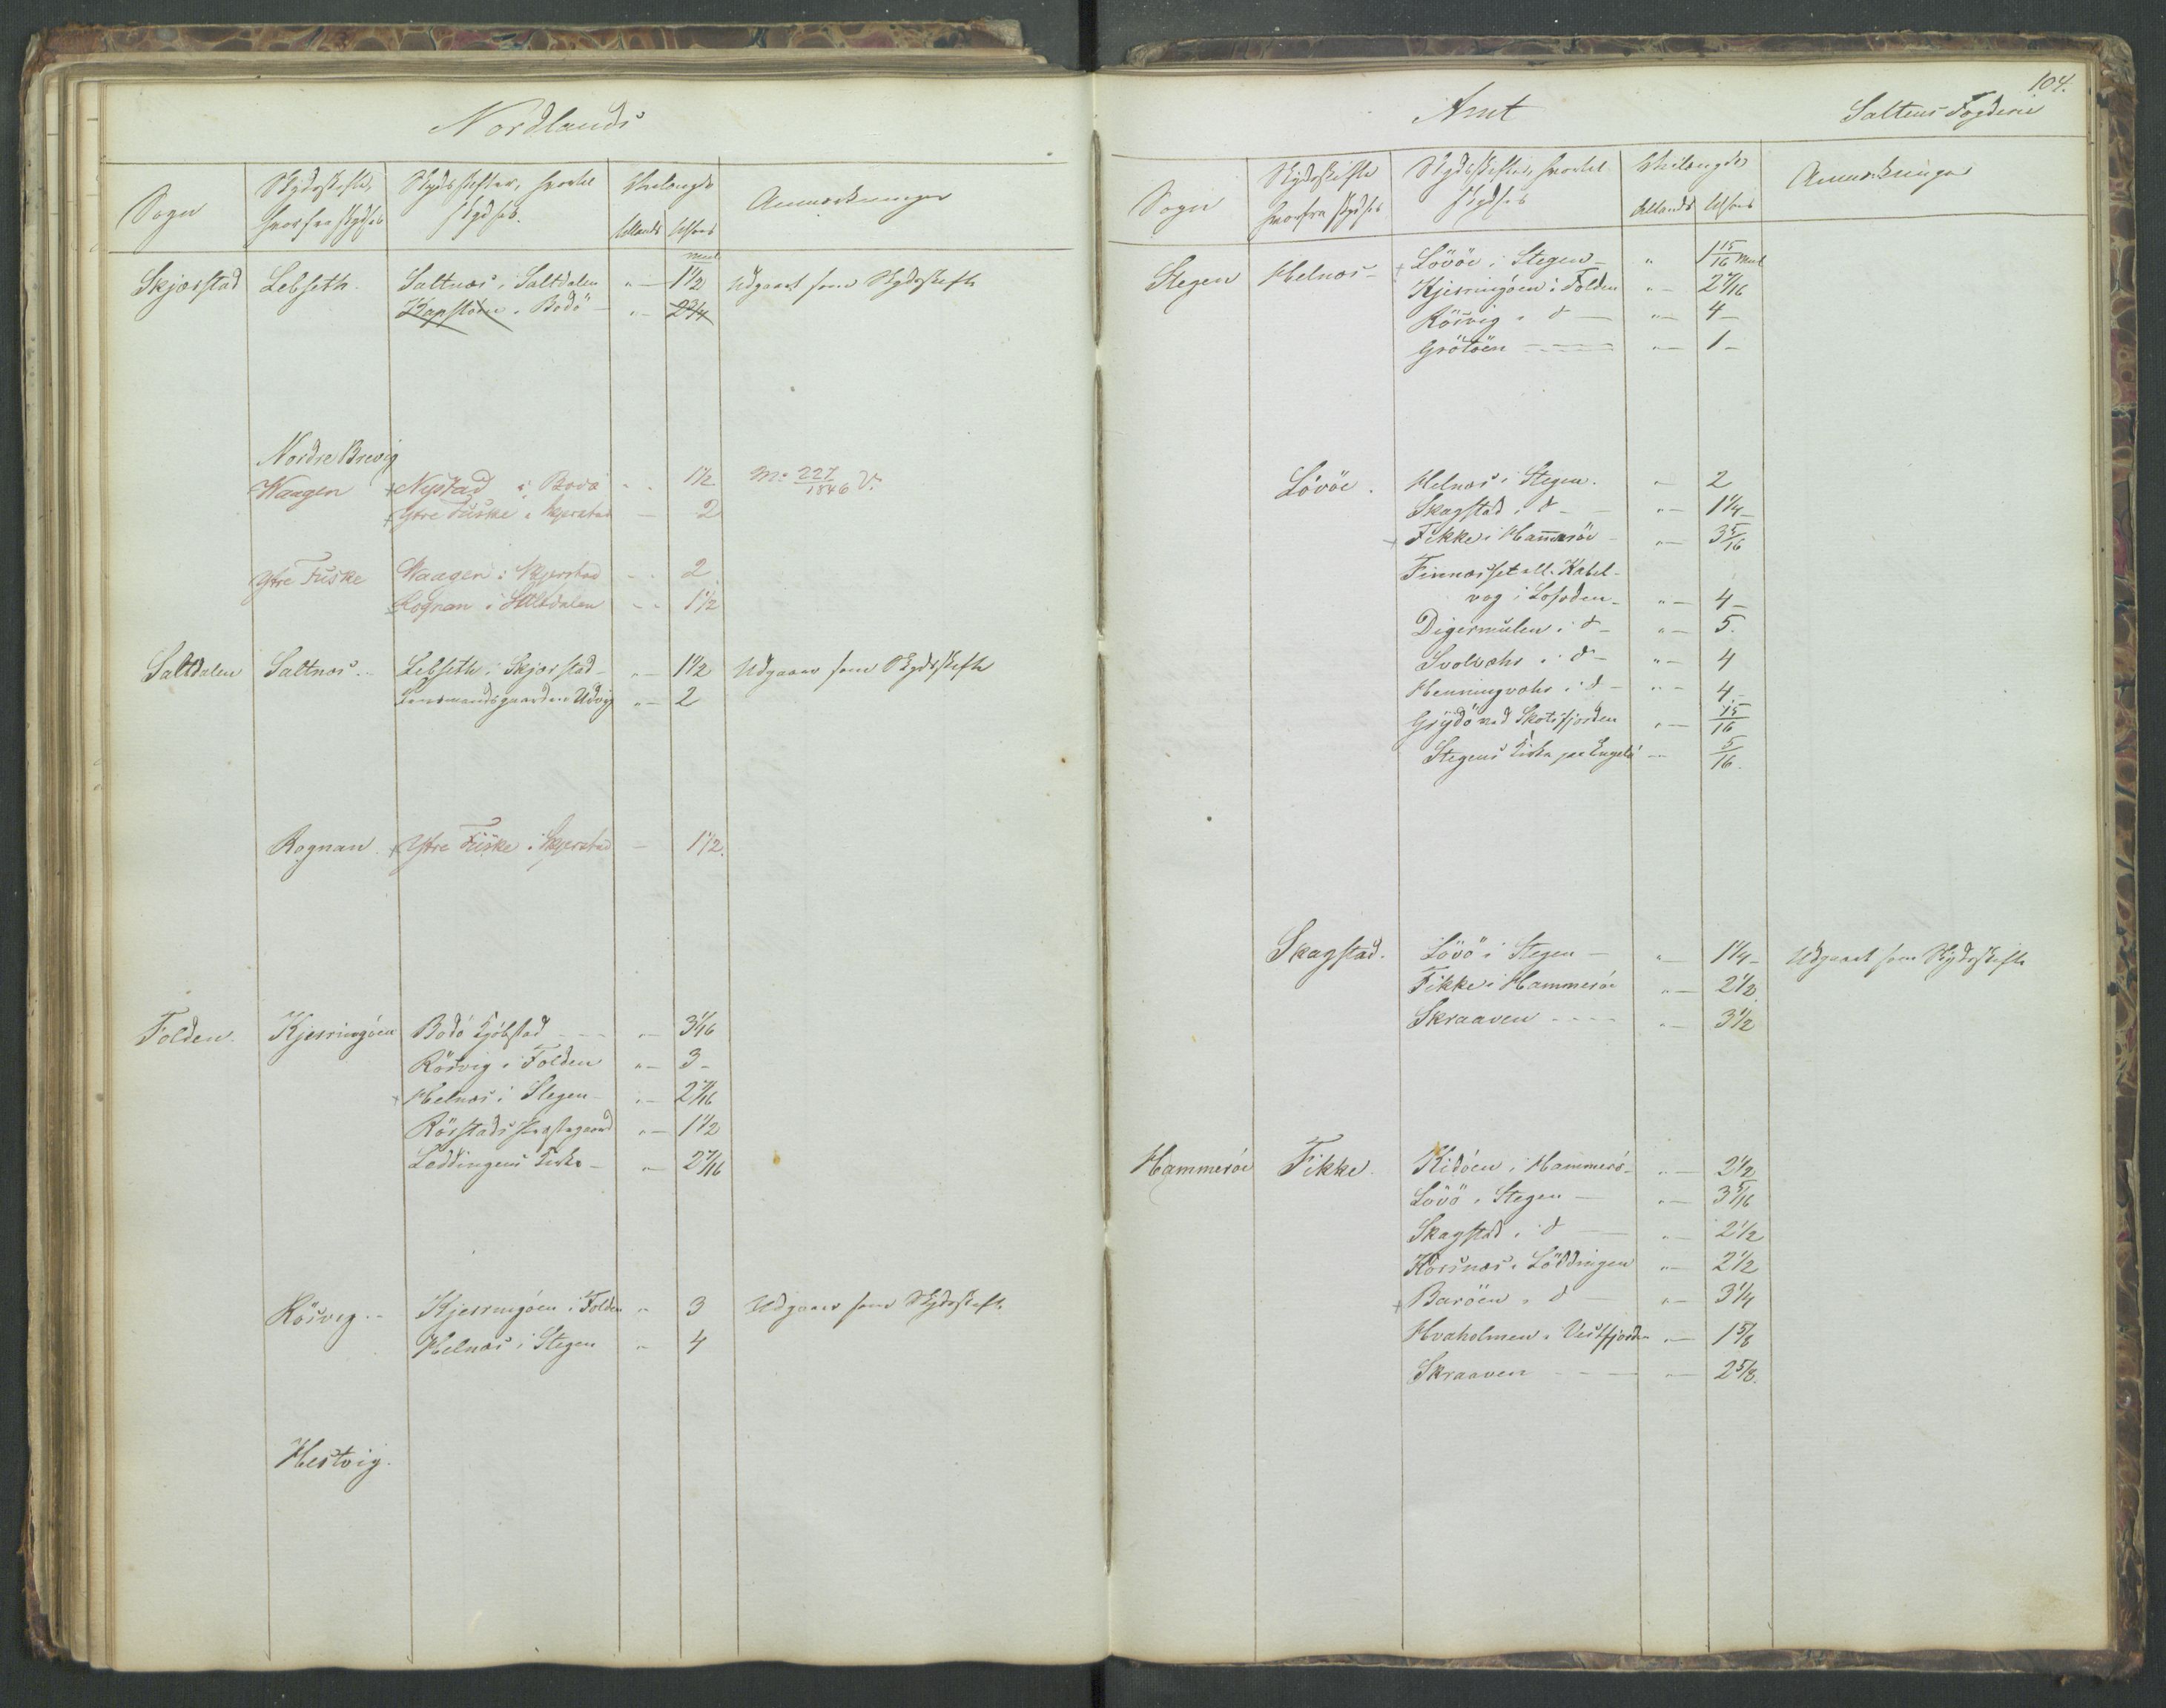 Nordlands
Sogn
Skydsskifte, hvorfra skydses
Skydsskifter, hvortil skydses.
Veilængde
tillands
tilsøes
Anmærkninger
Skjærstad Lebseth. Saltnæs i Saltdalen " — 1 1/2 Miil Udgaaet som Skydsskifte
Kapstøen i Bodö — " — 2 3/4
Nordre Brevig
Waagen + Nystad i Bodö " - 1 1/2 M: 227/1846 V.
+ Ytre Fuske i Skjerstad — 2
Ytre Fuske Waagen i Skjerstad - - 2
Rognan i Saltdalen - - 1 1/2
Saltdalen Saltnæs .. Lebseth i Skjærstad - " — 1 1/2 Udgaaer som Skydsskifte
Lensmandsgaarden Udvig " — 2
Rognan. + Ytre Fuske i Skjerstad — 1 1/2.
Folden. Kjerringöen Bodö Kjöbstad - - - " — 3 1/16
Rösvig i Folden " — 3 -
+ Helnæs i Stegen - " — 2 7/16
Rörstads Præstegaard " — 1 1/2
Löddingens Kirke - " — 2 7/16
Rösvig. - Kjerringöen i Folden " 3 Udgaaer som Skydsskifte
Helnæs i Stegen " 4
Hestvig.
104.
Amt
Saltens Fogderie
Sogn
Skydsskifte hvorfra skydses
Skydsskifter, hvortil skydses
Veilængde
tillands
tilsøes
Anmærkninger
Stegen Helnæs - + Lövöe i Stegen - " 1 15/16 Miil
Kjerringöen i Folden " - 2 7/16
Rösvig i do — " — 4 -
Grötöen - - - - " — 1 -
Lövöe. Helnæs i Stegen. " - 2
Skagstad i do - " — 1 1/4 -
+ Fikke i Hammeröe - " — 3 5/16
Finnæsset ell. Kabel-
vog i Lofoden - " — 4 -
Digermulen i do - " — 5.
Svolvohr i do - " — 4
Henningvohr i do - " - 4 -
Grydö ved Skotsfjorden " — 15/16
Stegens Kirke paa Engelö — 5/16.
Skagstad. Lövö i Stegen — " — 1 1/4 - Udgaaet som Skydsskifte
Fikke i Hammeröe " — 2 1/2
Skraaven - - - - " — 3 1/2
Hammeröe Fikke. Kidöen i Hammerö - " — 2 1/2
Lövö i Stegen — " — 3 5/16
Skagstad i do — " — 2 1/2
Korsnæs i Löddingen " — 2 1/2
+ Baröen i do — " — 3 1/4
Hvaholmen i Vestfjorden " — 1 5/8
Skraaven - - - " — 2 5/8.